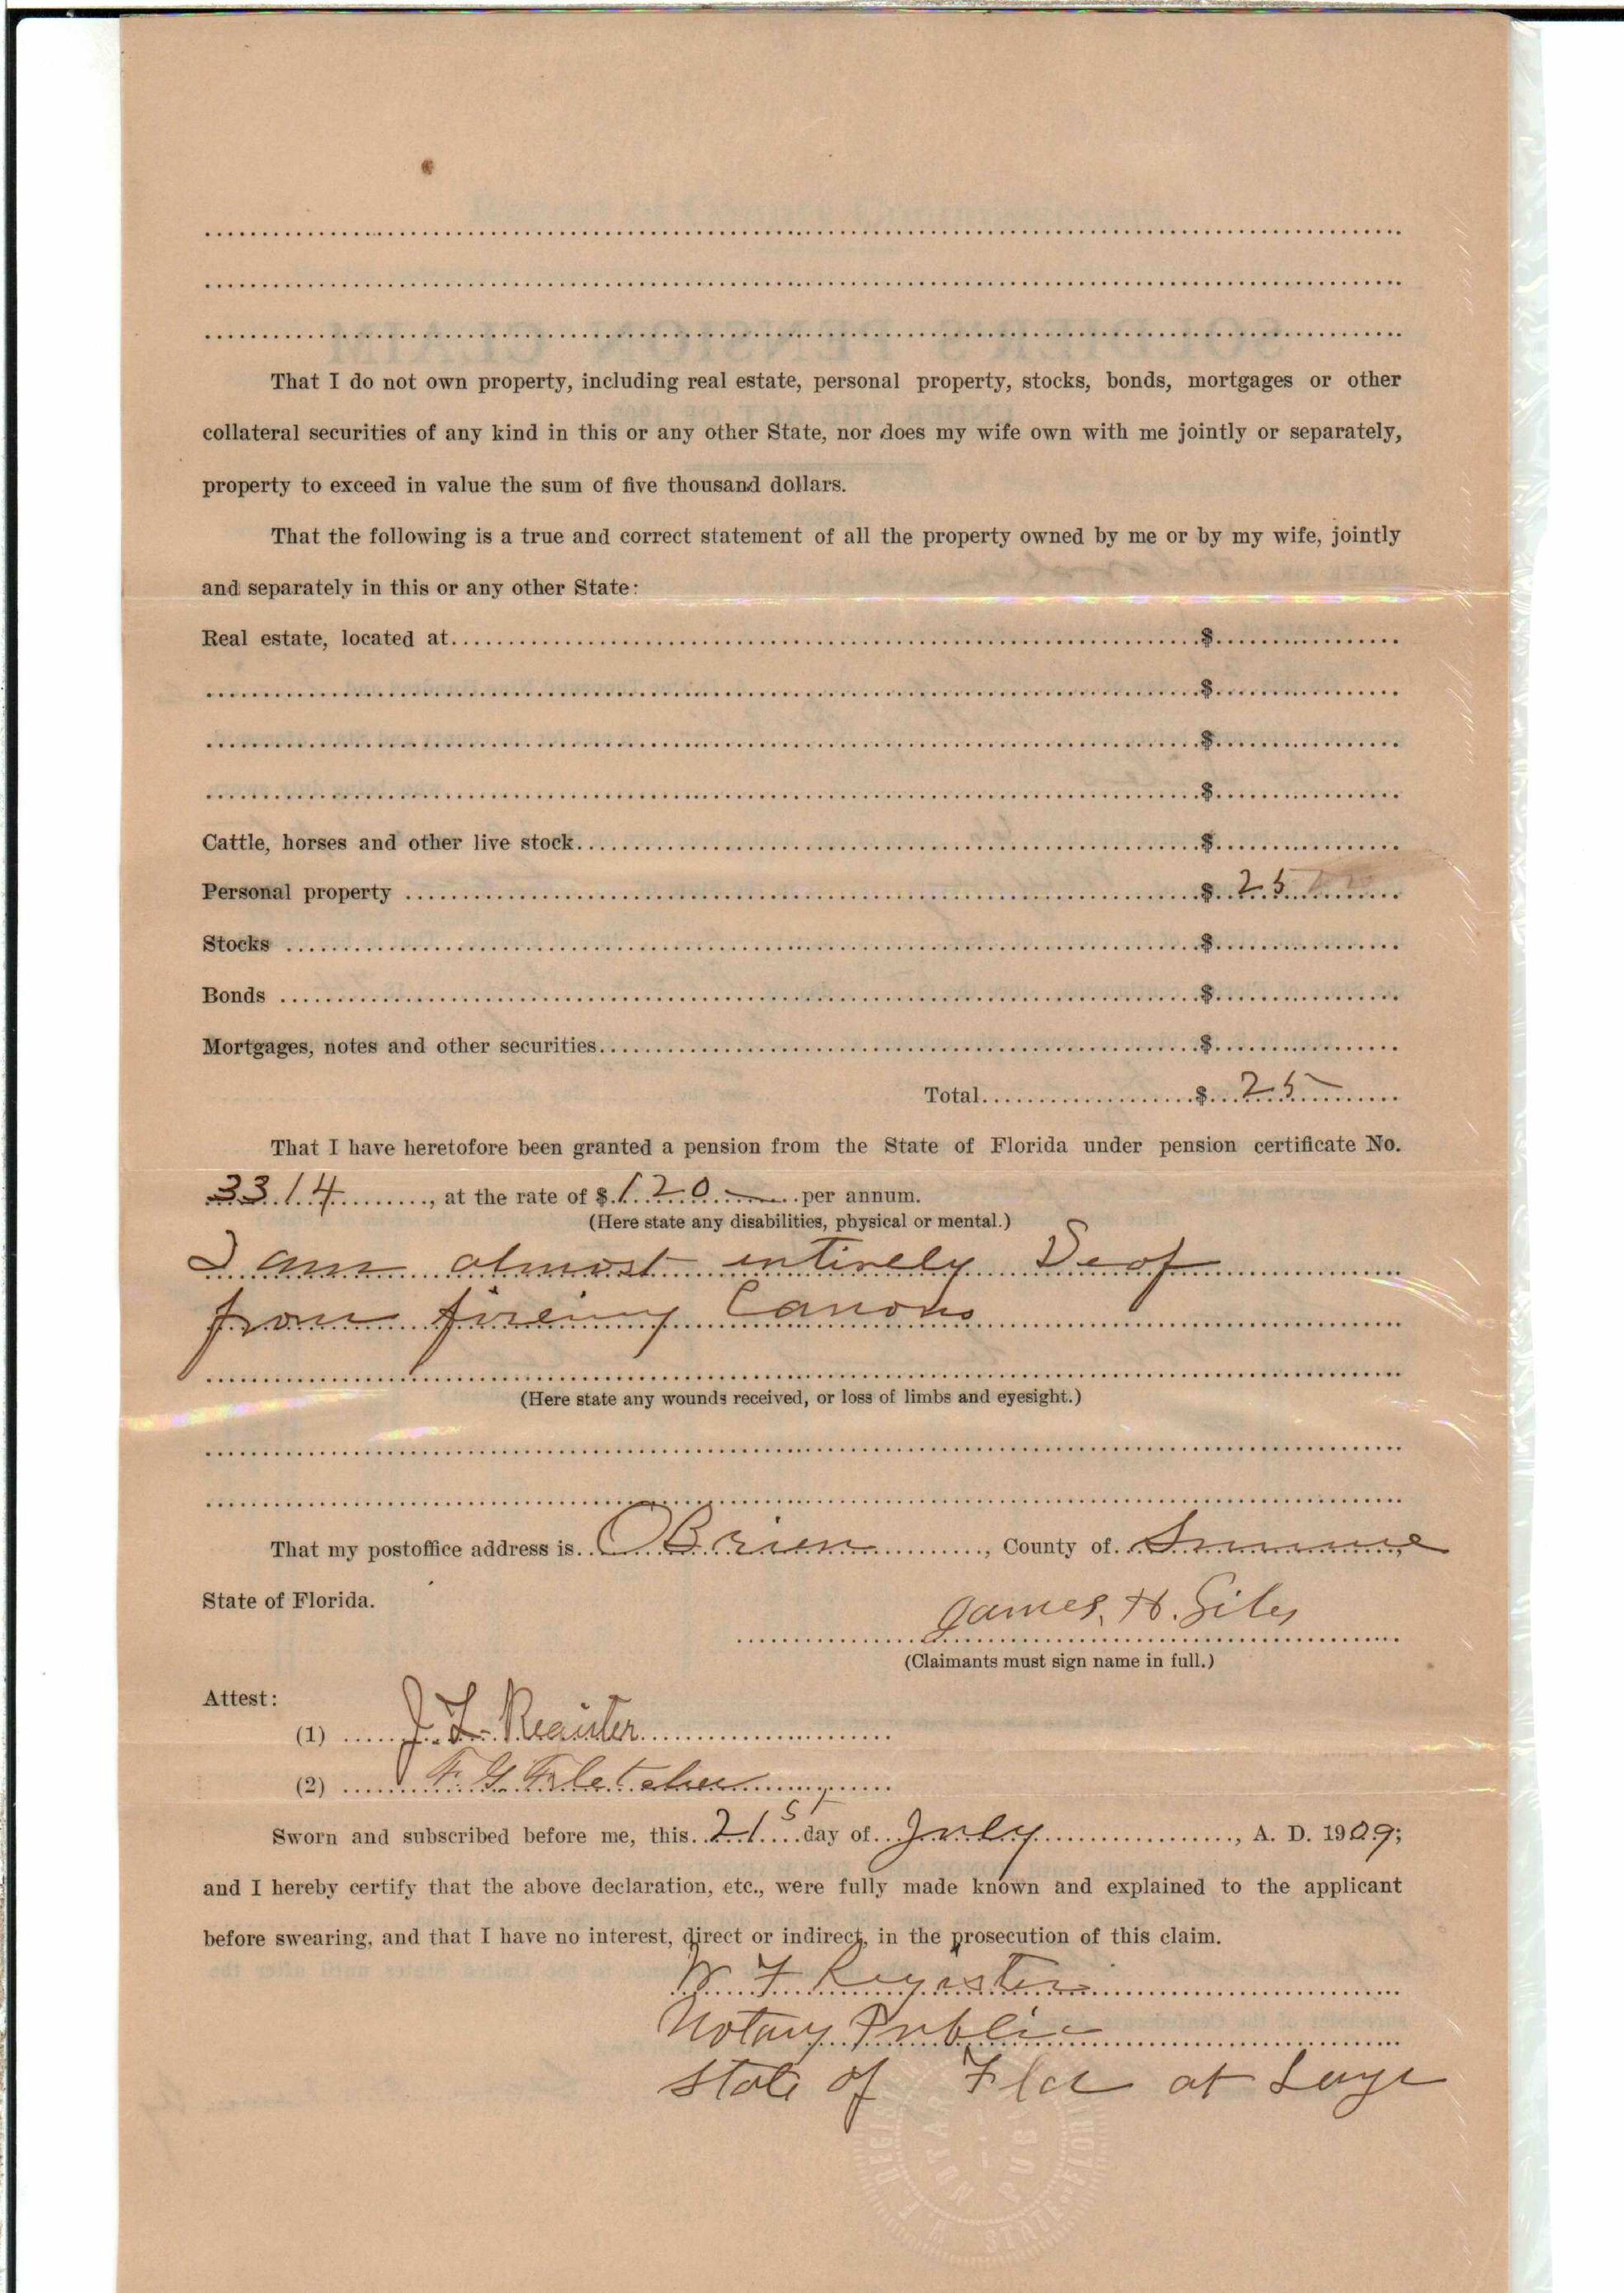 That I do not own property, including real estate, personal property, stocks, bonds, mortgages or other
collateral securities of any kind in this or any other State, nor does my wife own with me jointly or separately,
property to exceed in value the sum of five thousand dollars.
That the following is a true and correct statement of all the property owned by me or by my wife, jointly
and separately in this or any other State:
Real estate, located at $
$
$
$
Cattle, horses and other live stock $
Personal property $ 25
Stocks $
Bonds $
Mortgages, notes and other securities $
Total $ 25
That I have heretofore been granted a pension from the State of Florida under pension certificate No.
3314, at the rate of $ 120 per annum.
(Here state any disabilities, physical or mental.)
I am almost entirely Deof
from fireing Canons
(Here state any wounds received, or loss of limbs and eyesight.)
That my postoffice address is OBrien, County of Suwannee
State of Florida.
James. H. Giles
(Claimants must sign name in full.)
Attest:
(1) J. L. Register
(2) F. G. Fletcher
Sworn and subscribed before me, this 21s day of July, A. D. 1909;
and I hereby certify that the above declaration, etc., were fully made known and explained to the applicant
before swearing, and that I have no interest, direct or indirect, in the prosecution of this claim.
W F Register
Notary Public
State of Fla at Large